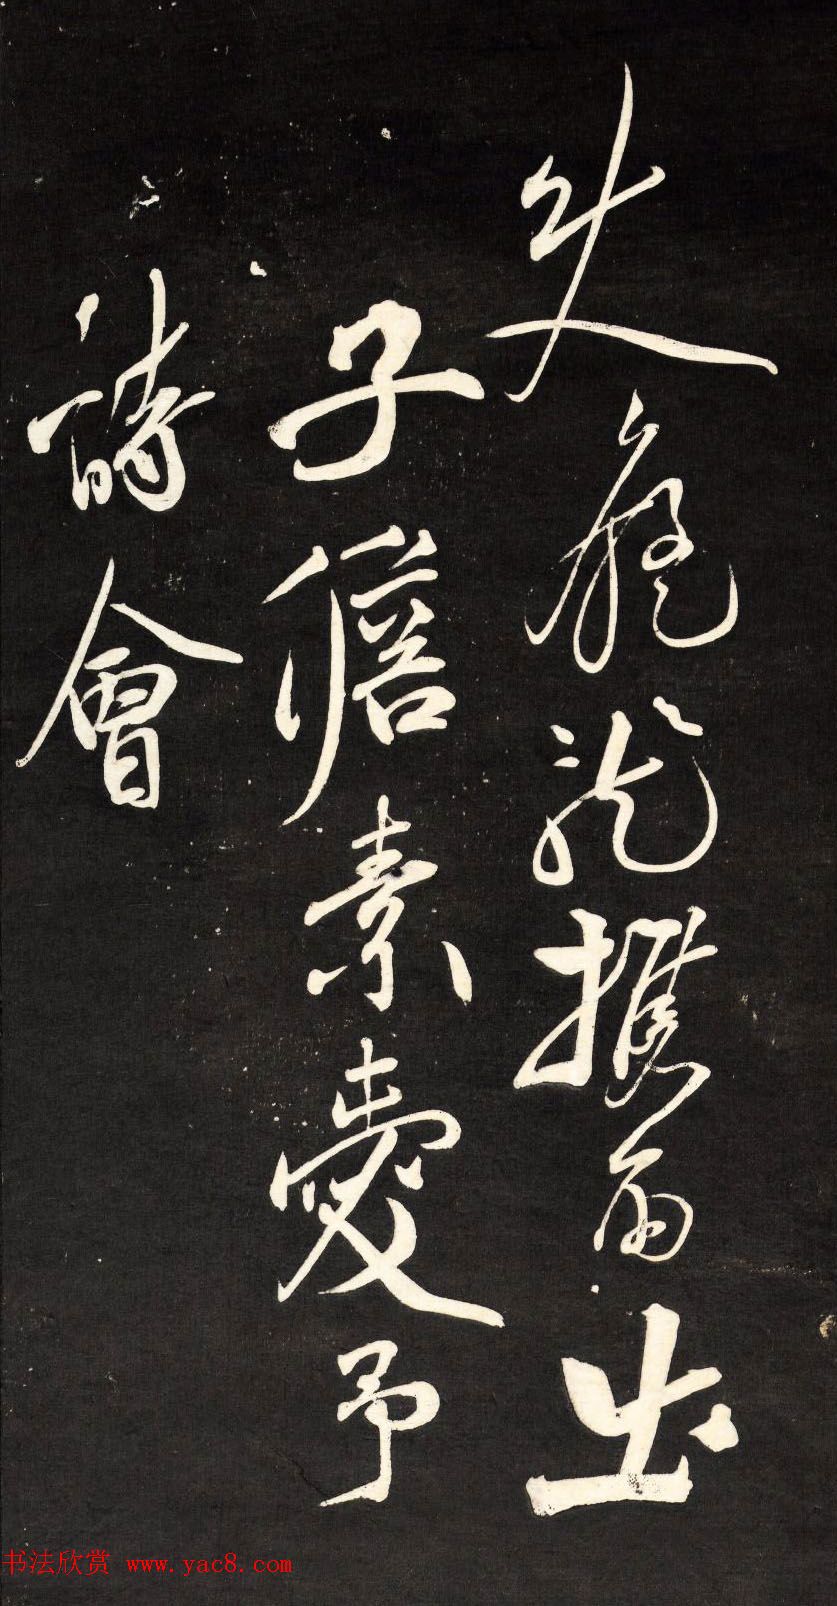 失龐龍攜而出
子瞻素愛予
詩會
书法欣赏 www.yac8.com